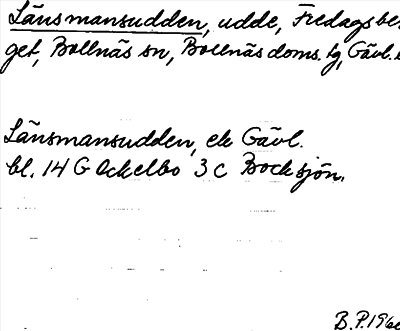 Länsmansudden, udde, Fredagsber-
get, Bollnäs sn, Bollnäs doms. tg, Gävl. l
Länsmansudden, ek Gävl.
bl. 14 G Ockelbo 3 c Bocksjön.
B.P. 196